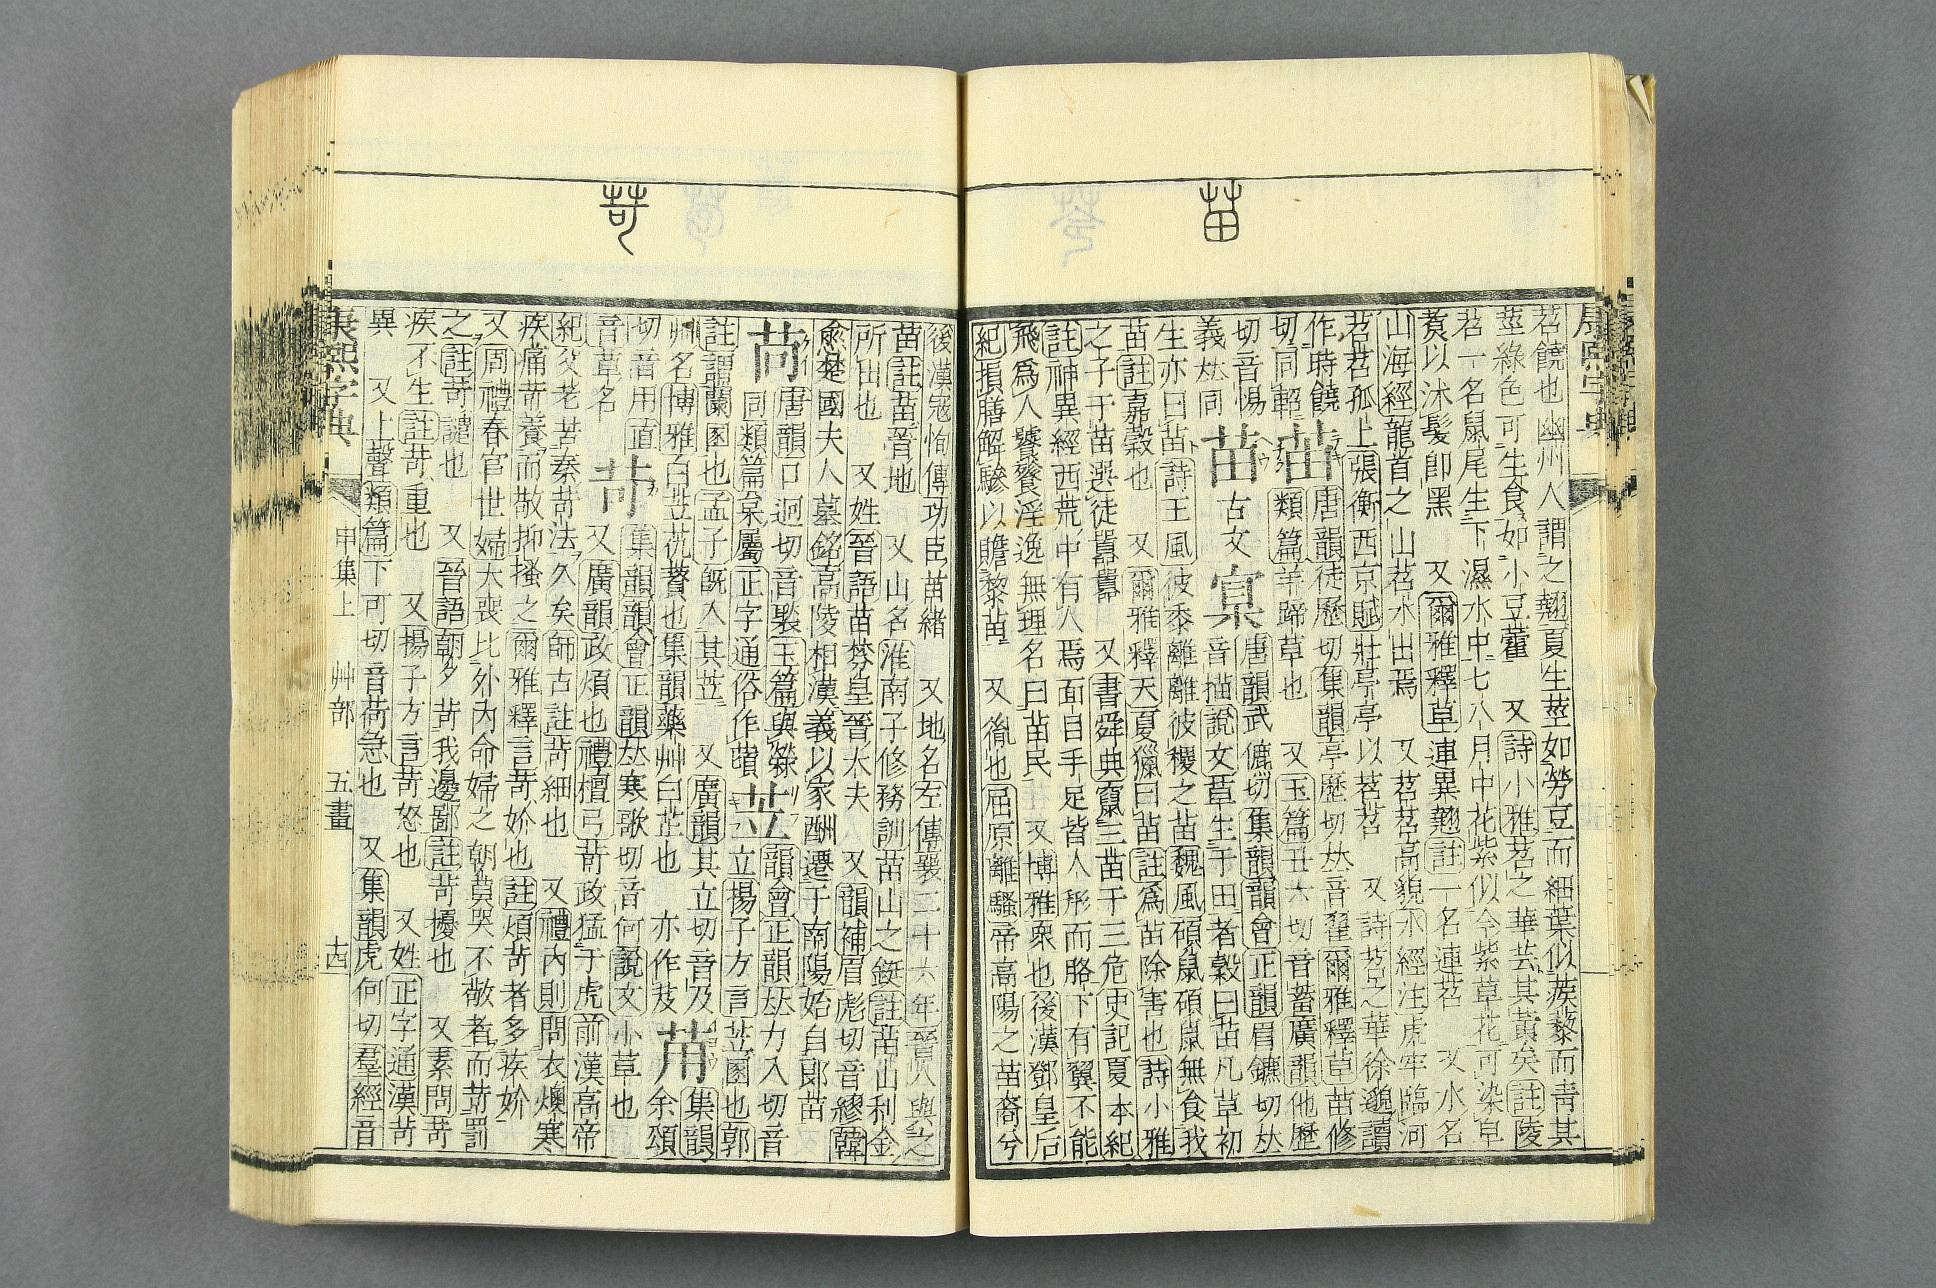 苗
苕饒也幽州人謂之翹夏生莖如勞豆而細葉似蒺藜而靑其
莖綠色可生食如小豆藿 又詩小雅苕之華芸其黃矣註陵
苕一名鼠尾生下濕水中七八月中花紫似今紫草花可染皁
煑以沐髮卽黑 又爾雅釋草連異翹註一名連苕 又水名
山海經龍首之山苕水出焉 又苕苕高貌水經注虎牢臨河
苕苕孤上張衡西京賦壯亭亭以苕苕 又詩苕之華徐邈讀
作時饒切同軺
苖唐韻徒歷切集韻亭歷切𠀤音翟爾雅釋草苖修
類篇羊蹄草也 又玉篇丑六切音蓄廣韻他歷
切音惕義𠀤同
苗古文𥤧唐韻武儦切集韻韻會正韻眉鑣切𠀤
音描說文草生于田者穀曰苗凡草初
生亦曰苗詩王風彼黍離離彼稷之苗魏風碩鼠碩鼠無食我
苗註嘉穀也 又爾雅釋天夏獵曰苗註爲苗除害也詩小雅
之子于苗選徒囂囂 又書舜典竄三苗于三危史記夏本紀
註神異經西荒中有人焉面目手足皆人形而胳下有翼不能
飛爲人饕餮淫逸無理名曰苗民 又博雅衆也後漢鄧皇后
紀損膳解驂以贍黎苗 又裔也屈原離騷帝高陽之苗裔兮
苛
後漢寇恂傳功臣苗緒 又地名左傳襄二十六年晉人與之
苗註苗晉地 又山名淮南子修務訓苗山之鋋註苗山利金
所出也 又姓晉語苗棼皇晉大夫 又韻補眉彪切音繆韓
愈楚國夫人墓銘高陵相漢義以家酬遷于南陽始自郞苗
苘唐韻口迥切音褧玉篇與檾
同類篇枲屬正字通俗作䔛
苙韻會正韻𠀤力入切音
立揚子方言苙圂也郭
註謂闌圂也孟子旣入其苙 又廣韻其立切音及
艸名博雅白苙茪蕡也集韻藥艸曰芷也 亦作芨
苚集韻余頌
切音用
苛集韻韻會正韻𠀤寒歌切音何說文小草也
又廣韻政煩也禮檀弓苛政猛于虎前漢高帝
紀父老苦秦苛法久矣師古註苛細也 又禮內則問衣燠寒
疾痛苛養而敬抑搔之爾雅釋言苛妎也註煩苛者多疾妎
又周禮春官世婦大喪比外內命婦之朝莫哭不敬者而苛罰
之註苛譴也 又晉語朝夕苛我邊鄙註苛擾也 又素問苛
疾不生註苛重也 又揚子方言苛怒也 又姓正字通漢苛
異 又上聲類篇下可切音荷急也 又集韻虎何切羣經音
康熙字典 申集上 艸部 五畫 十四